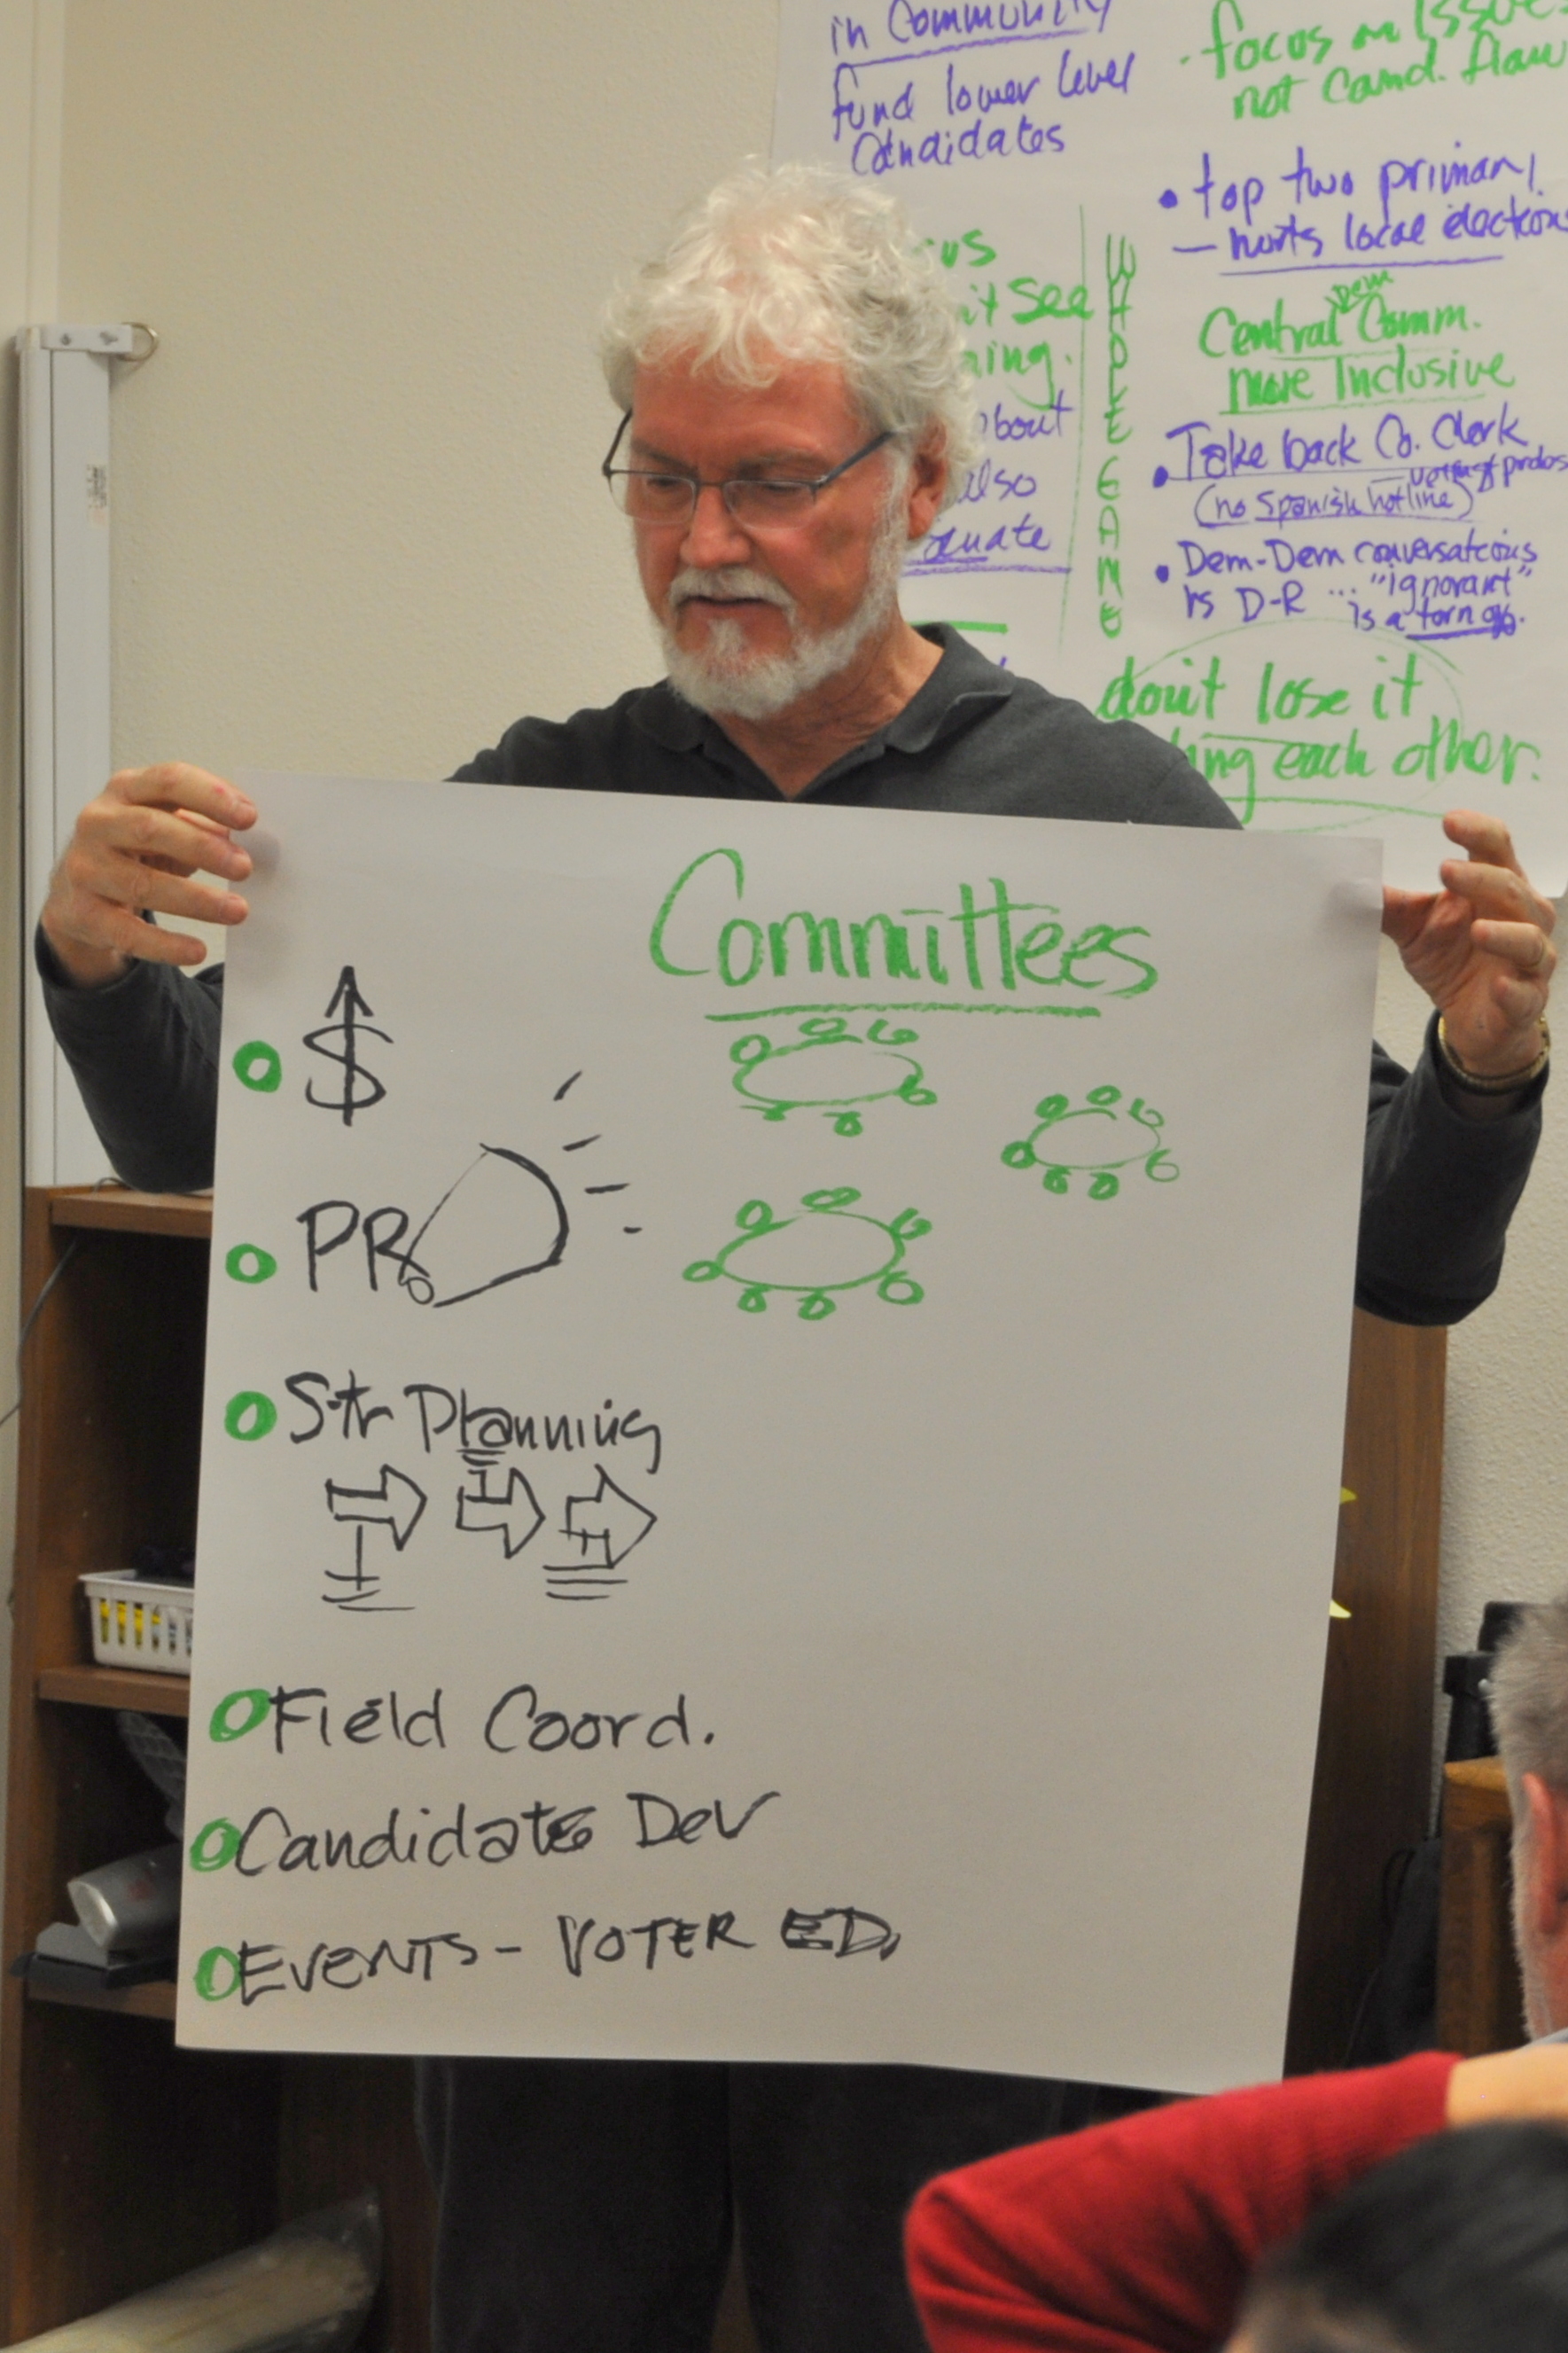 in Community
fund lower level
candidates
us
it see
ning.
about
also
quate
WHOLE GAME
focus on Issues
not cand. flaw
• top two primary
— hurts local elections
Central Dem Comm.
more Inclusive
• Take back Co. Clerk
(no Spanish hotline)
• Dem-Dem conversations
vs D-R ... "ignorant"
is a turn off.
don't lose it
ing each other.
Committees
$
PR
Str Planning
Field Coord.
Candidate Dev
EVENTS - VOTER ED.